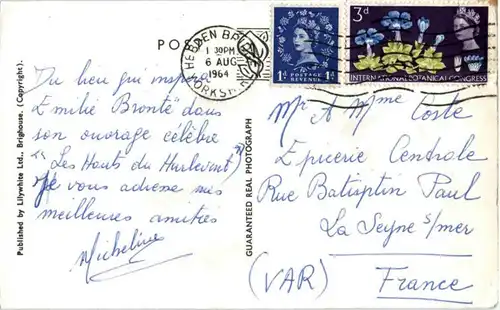 Published by Lilywhite Ltd., Brighouse. (Copyright).
POS
HEBDEN BR
1 30PM
6 AUG
1964
YORKS
1D POSTAGE REVENUE 1D
3D
INTERNATIONAL BOTANICAL CONGRESS
Du lieu qui inspira
Emilie Brontë dans
son ouvrage célèbre
"Les Hauts du Hurlevent"
Je vous adresse mes
meilleures amitiés
Micheline
GUARANTEED REAL PHOTOGRAPH
Mr A Mme Coste
Epicerie Centrale
Rue Batisptin Paul
La Seyne s/mer
(VAR) France